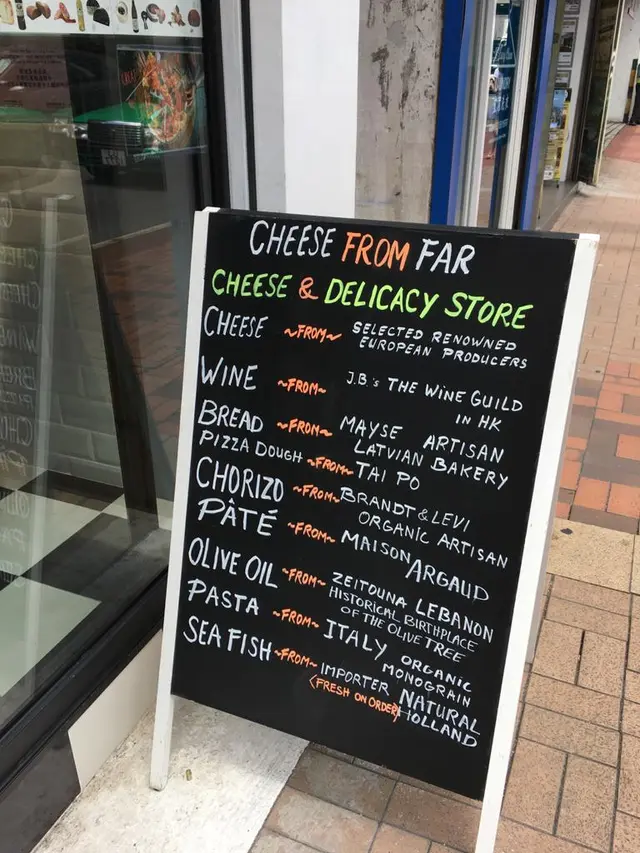 CHEESE FROM FAR
CHEESE & DELICACY STORE
CHEESE ~FROM~ SELECTED RENOWNED
EUROPEAN PRODUCERS
WINE ~FROM~ J.B.s THE WINE GUILD
IN HK
BREAD ~FROM~ MAYSE ARTISAN
LATVIAN BAKERY
PIZZA DOUGH ~FROM~ TAI PO
CHORIZO ~FROM~ BRANDT & LEVI
ORGANIC ARTISAN
PÂTÉ ~FROM~ MAISON ARGAUD
OLIVE OIL ~FROM~ ZEITOUNA LEBANON
HISTORICAL BIRTHPLACE
OF THE OLIVE TREE
PASTA ~FROM~ ITALY ORGANIC
MONOGRAIN
SEA FISH ~FROM~ IMPORTER NATURAL
(FRESH ON ORDER) HOLLAND